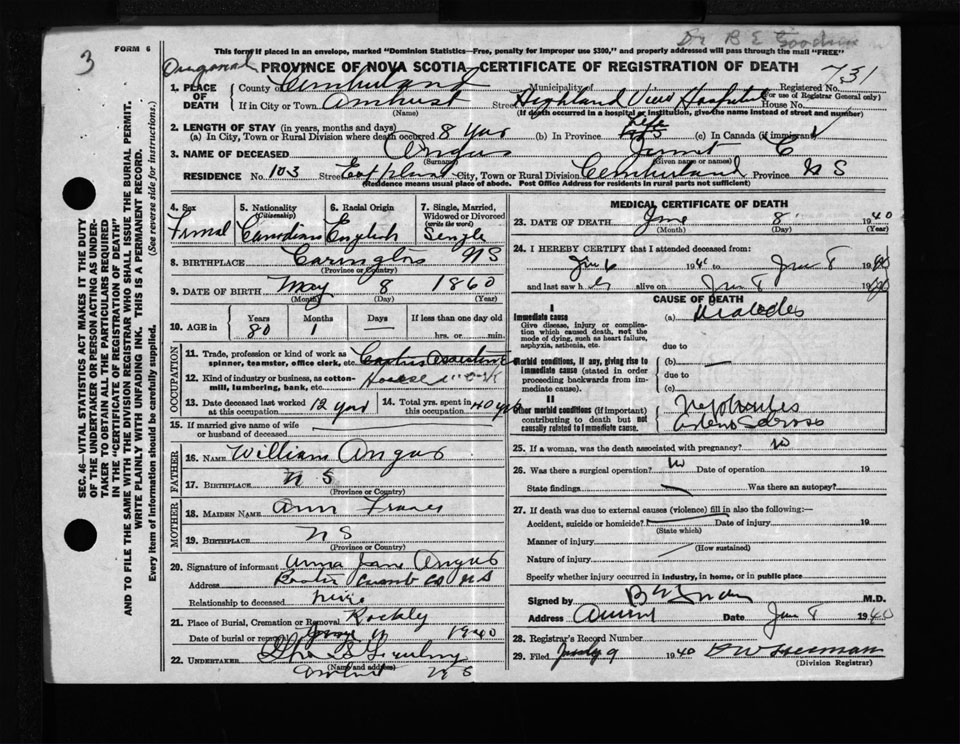 3
FORM 6
This form if placed in an envelope, marked "Dominion Statistics—Free, penalty for improper use $300," and properly addressed will pass through the mail "FREE"
Dr B E
PROVINCE OF NOVA SCOTIA—CERTIFICATE OF REGISTRATION OF DEATH
1. PLACE OF DEATH
County of Cumberland
Municipality of
Registered No. 731
(For use of Registrar General only)
If in City or Town Amherst
(Name)
Street Highland View Hospital House No.
(If death occurred in a hospital or institution, give the name instead of street and number)
2. LENGTH OF STAY (in years, months and days)
(a) In City, Town or Rural Division where death occurred 8 years (b) In Province Life (c) In Canada (if immigrant)
3. NAME OF DECEASED Angus C
(Surname) (Given name or names)
RESIDENCE No. 103 Street City, Town or Rural Division Cumberland Province N S
(Residence means usual place of abode. Post Office Address for residents in rural parts not sufficient)
4. Sex Femal
5. Nationality (Citizenship) Canadian
6. Racial Origin English
7. Single, Married, Widowed or Divorced (write the word) Single
8. BIRTHPLACE N S
(Province or Country)
9. DATE OF BIRTH May 8 1860
(Month) (Day) (Year)
10. AGE in
Years Months Days If less than one day old
80 1 — hrs. or min.
OCCUPATION
11. Trade, profession or kind of work as spinner, teamster, office clerk, etc.
12. Kind of industry or business, as cotton-mill, lumbering, bank, etc. House work
13. Date deceased last worked at this occupation 12 years
14. Total yrs. spent in this occupation 40 yrs
15. If married give name of wife or husband of deceased
FATHER
16. Name William Angus
17. BIRTHPLACE N S
(Province or Country)
MOTHER
18. MAIDEN NAME Ann
19. BIRTHPLACE N S
(Province or Country)
20. Signature of informant Anna Jane Angus
Address Cumb Co N S
Relationship to deceased niece
21. Place of Burial, Cremation or Removal Rockley
Date of burial or removal 1940
22. UNDERTAKER
(Name and address)
Amherst N S
MEDICAL CERTIFICATE OF DEATH
23. DATE OF DEATH June 8 1940
(Month) (Day) (Year)
24. I HEREBY CERTIFY that I attended deceased from:
Jun 6 1940 to Jun 8 1940
and last saw her alive on Jun 8 1940
CAUSE OF DEATH
I
Immediate cause
Give disease, injury or complication which caused death, not the mode of dying, such as heart failure, asphyxia, asthenia, etc.
(a) Diabetes
due to
Morbid conditions, if any, giving rise to immediate cause (stated in order proceeding backwards from immediate cause).
(b) —
due to
(c)
II
Other morbid conditions (if important) contributing to death but not causally related to immediate cause.
25. If a woman, was the death associated with pregnancy? No
26. Was there a surgical operation? No Date of operation 19
State findings Was there an autopsy?
27. If death was due to external causes (violence) fill in also the following:—
Accident, suicide or homicide? Date of injury 19
(State which)
Manner of injury
(How sustained)
Nature of injury
Specify whether injury occurred in industry, in home, or in public place
Signed by M.D.
Address Date Jun 8 1940
28. Registrar's Record Number
29. Filed July 9 1940
(Division Registrar)
SEC. 46—VITAL STATISTICS ACT MAKES IT THE DUTY
OF THE UNDERTAKER OR PERSON ACTING AS UNDER-
TAKER TO OBTAIN ALL THE PARTICULARS REQUIRED
IN THE "CERTIFICATE OF REGISTRATION OF DEATH"
AND TO FILE THE SAME WITH THE DIVISION REGISTRAR WHO SHALL ISSUE THE BURIAL PERMIT.
WRITE PLAINLY WITH UNFADING INK. THIS IS A PERMANENT RECORD.
Every item of information should be carefully supplied. (See reverse side for instructions.)